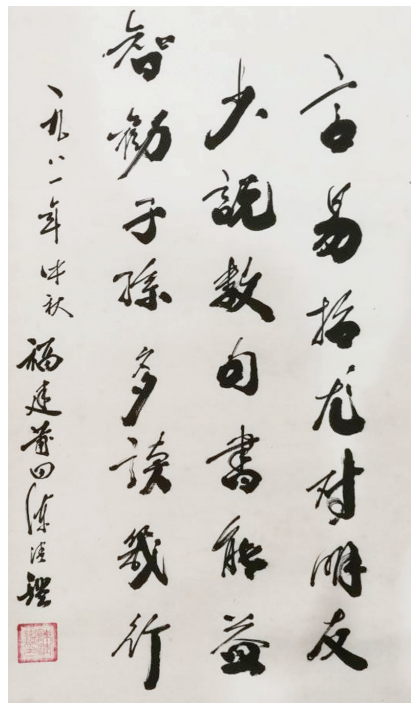 言易招尤對朋友
少說數句書能益
智勸子孫多讀幾行
一九八一年仲秋福建莆田陳